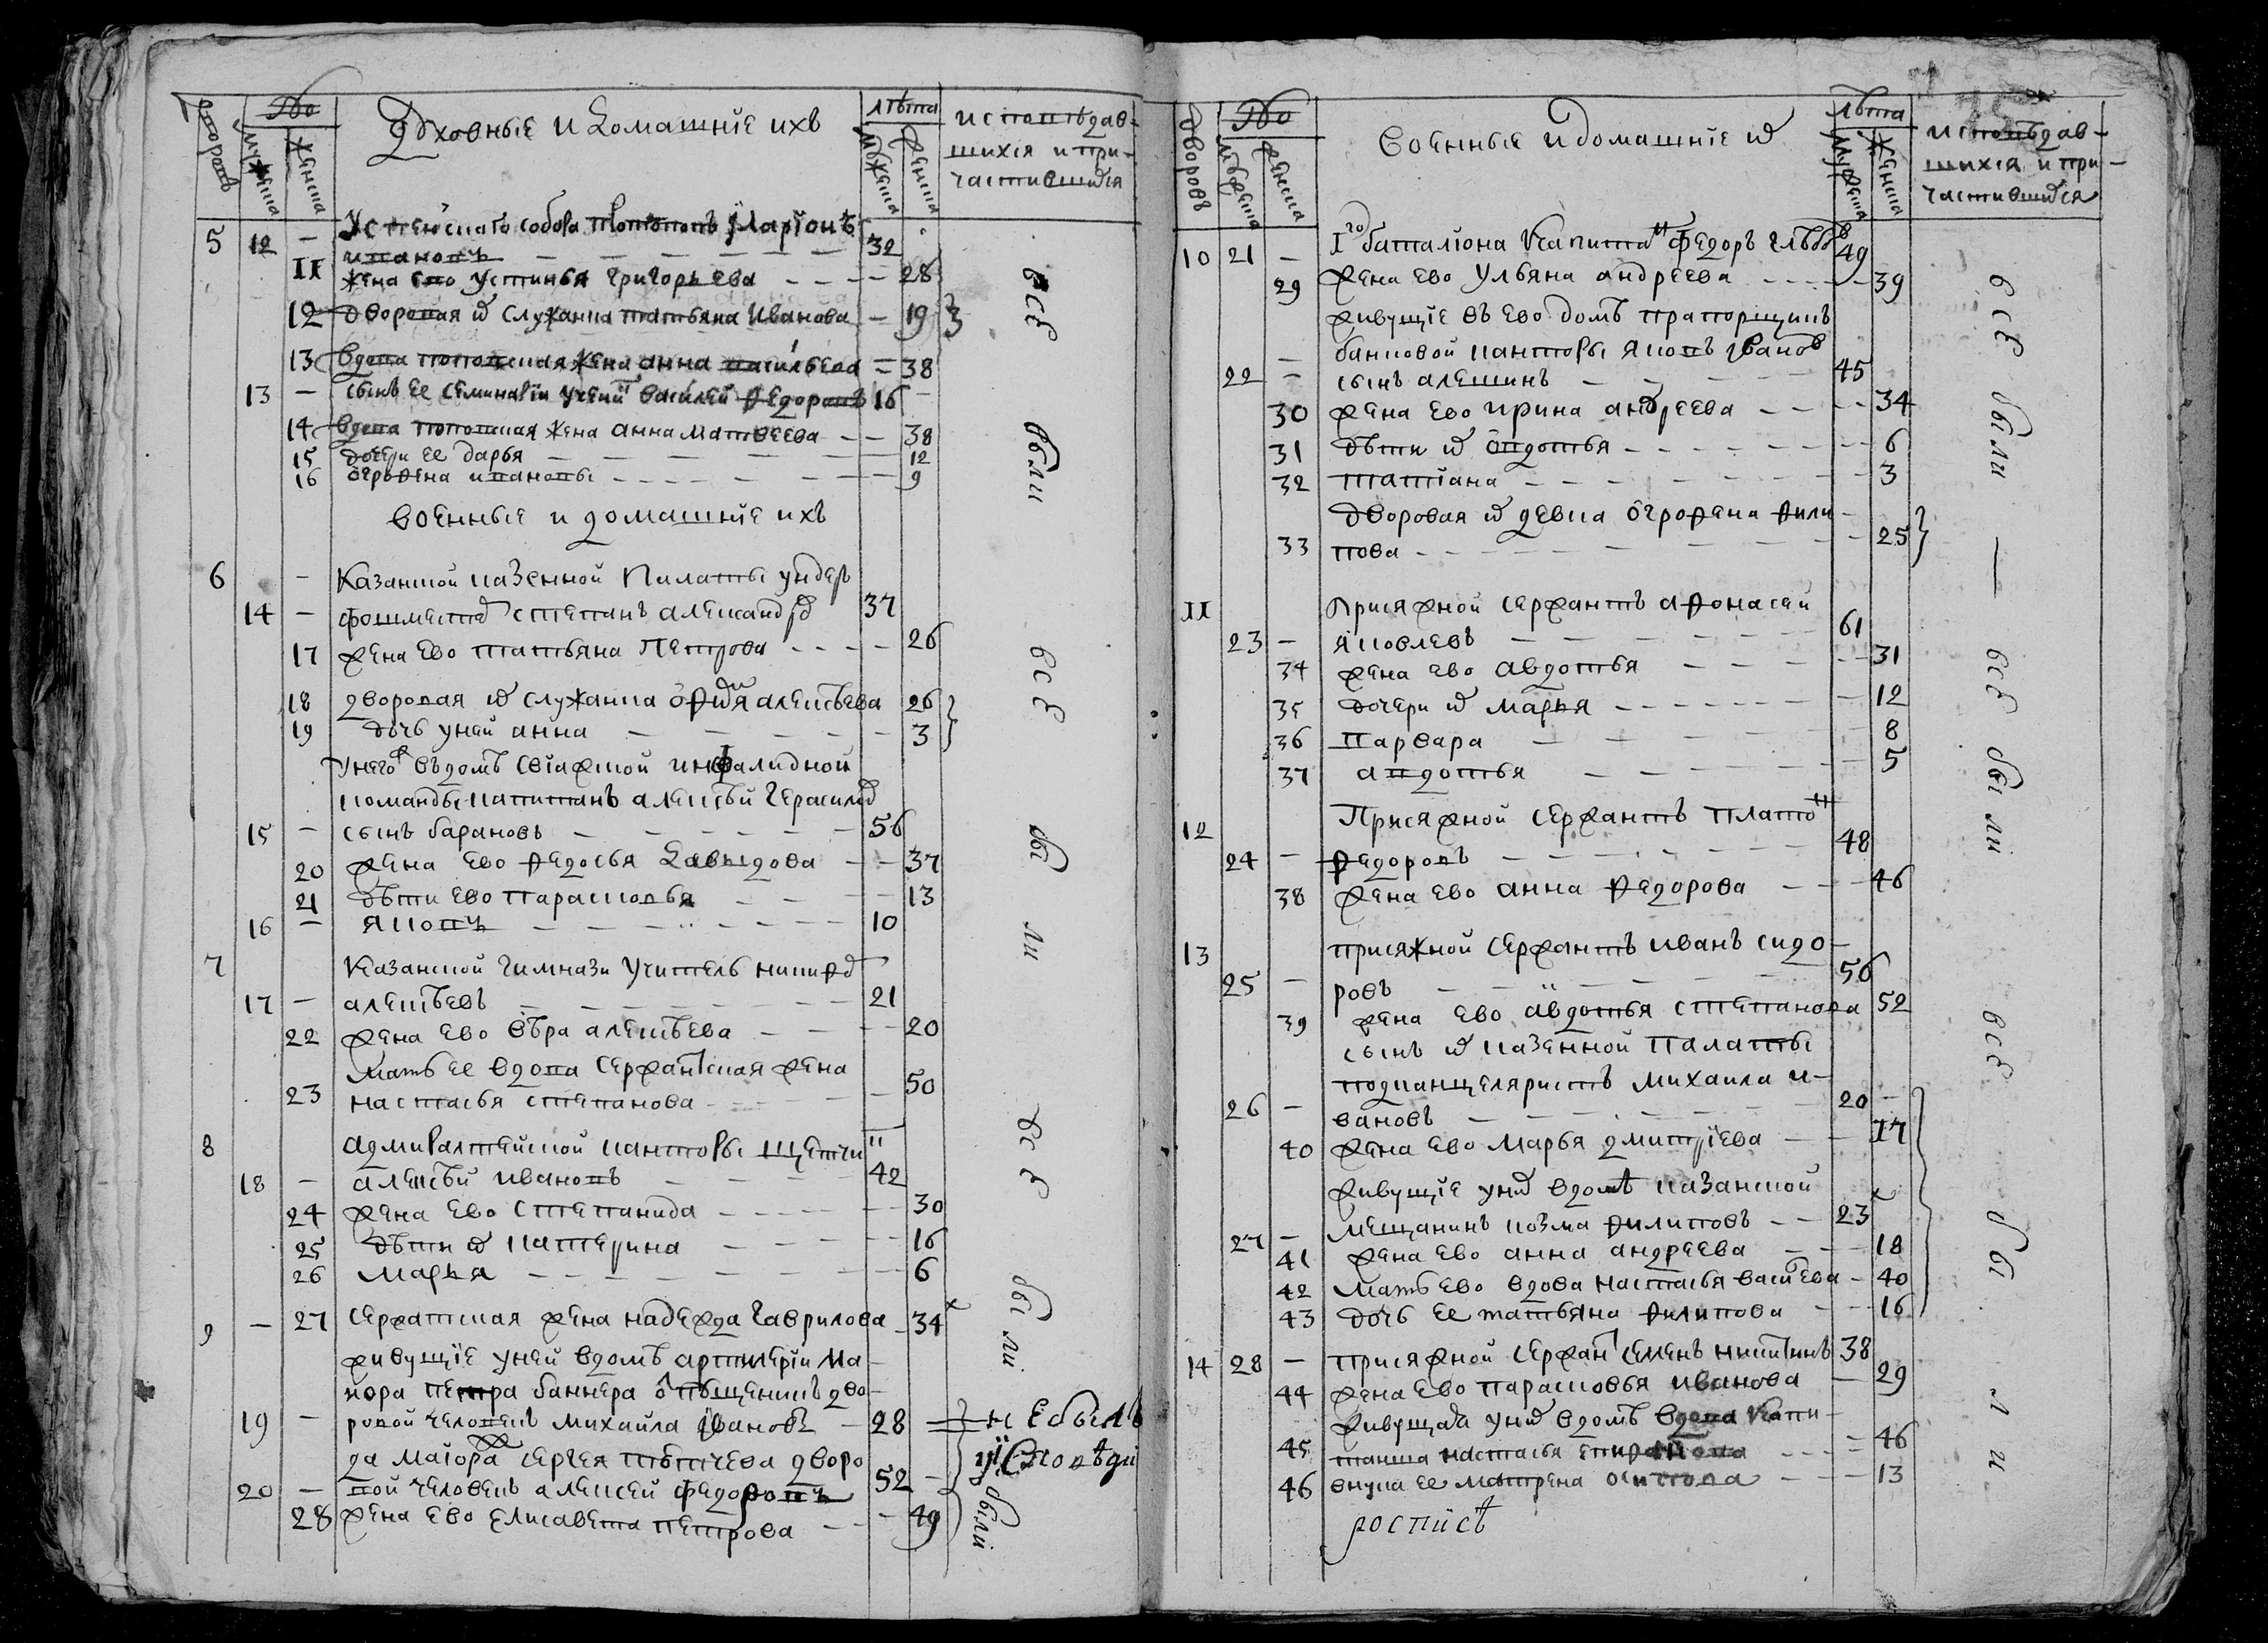 дворовъ
Дво
мужеска
женска
Духовные и домашнïе ихъ
лѣта
мужеска
женска
исповѣдав-
шихся и при-
частившихся
5 12 — собора протопопъ Ларïонъ
ивановъ — 32
11 жена ево устинья григорьева — 28
12 дворовая их служанка татьяна Иванова — 19
13 вдова поповская жена анна васильева — 38
13 — сынъ ее семинарïи ученик василей федоровъ 16 —
14 вдова поповская жена анна матвеева — 38
15 дочери ее дарья — 12
16 огрофена ивановы — 9
всѣ были
военные и домашнïе ихъ
6 — казанской казенной палаты ундеръ
14 — степанъ александров 37
17 жена ево татьяна петрова — 26
18 дворовая их служанка алексѣева 26
19 дочь у ней анна — 3
у него ж въ домѣ свïажской инвалидной
команды капитанъ алексѣй герасимов
15 — сынъ барановъ — 56
20 жена ево федосья давыдова — 37
21 дѣти ево парасковья — 13
16 — яковъ — 10
всѣ были
7 казанской гимнази учитель никифор
17 — алексѣевъ — 21
22 жена ево вѣра алексѣева — 20
мать ее вдова сержантская жена
23 настасья степанова — 50
8 адмиралтейской канторы
18 — алексѣй ивановъ — 42
24 жена ево степанида — 30
25 дѣти их катерина — 16
26 марья — 6
всѣ были
9 — 27 сержатская жена надежда гаврилова — 34
живущïе у ней в домѣ артилерïи ма-
иора петра баннера дво-
19 — ровой человекъ михаила ивановъ — 28 не былъ
у исповѣди
да маïора сергея дворо
20 — вой человекъ алексей федоровъ 52 —
28 жена ево елисавета петрова — 49
были
дворовъ
Дво
мужеска
женска
военные и домашнïе их
лѣта
мужеска
женска
исповѣдав-
шихся и при-
частившихся
10 21 — 1го баталïона капитан федоръ глѣбов 49
29 жена ево ульяна андреева — 39
живущïе въ ево домѣ прапорщикъ
банковой канторы яковъ иванов
22 — сынъ алешинъ — 45
30 жена ево ирина андреева — 34
31 дѣти их овдотья — 6
32 татïана — 3
дворовая их девка огрофена фили-
33 пова — 25
всѣ были —
11 присяжной сержантъ афонасей
23 — яковлевъ — 61
34 жена ево авдотья — 31
35 дочери их марья — 12
36 варвара — 8
37 авдотья — 5
12 присяжной сержантъ плато н
24 — федоровъ — 48
38 жена ево анна федорова — 46
всѣ были
13 присяжной сержантъ иванъ сидо-
25 — ровъ — 56
39 жена ево авдотья степанова 52
сынъ их казенной палаты
подканцеляристъ михаила и-
26 — вановъ — 20 —
40 жена ево марья дмитрïева — 17
живущïе у них в домѣ казанской
27 — мещанинъ козма филиповъ — 23
41 жена ево анна андреева — 18
42 мать ево вдова настасья васильева — 40
43 дочь ее татьяна филипова — 16
14 28 — присяжной сержант семенъ никитинъ 38
44 жена ево парасковья иванова — 29
живущая у них в домѣ вдова капи-
45 танша настасья — 46
46 внука ее матрена осипова — 13
всѣ бы ли
роспись